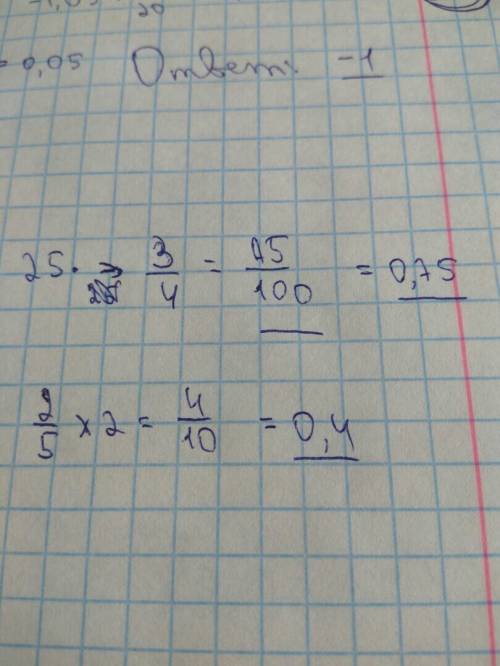 20
= 0,05 Ответ: -1
25 · 3/4 = 75/100 = 0,75
2/5 x 2 = 4/10 = 0,4